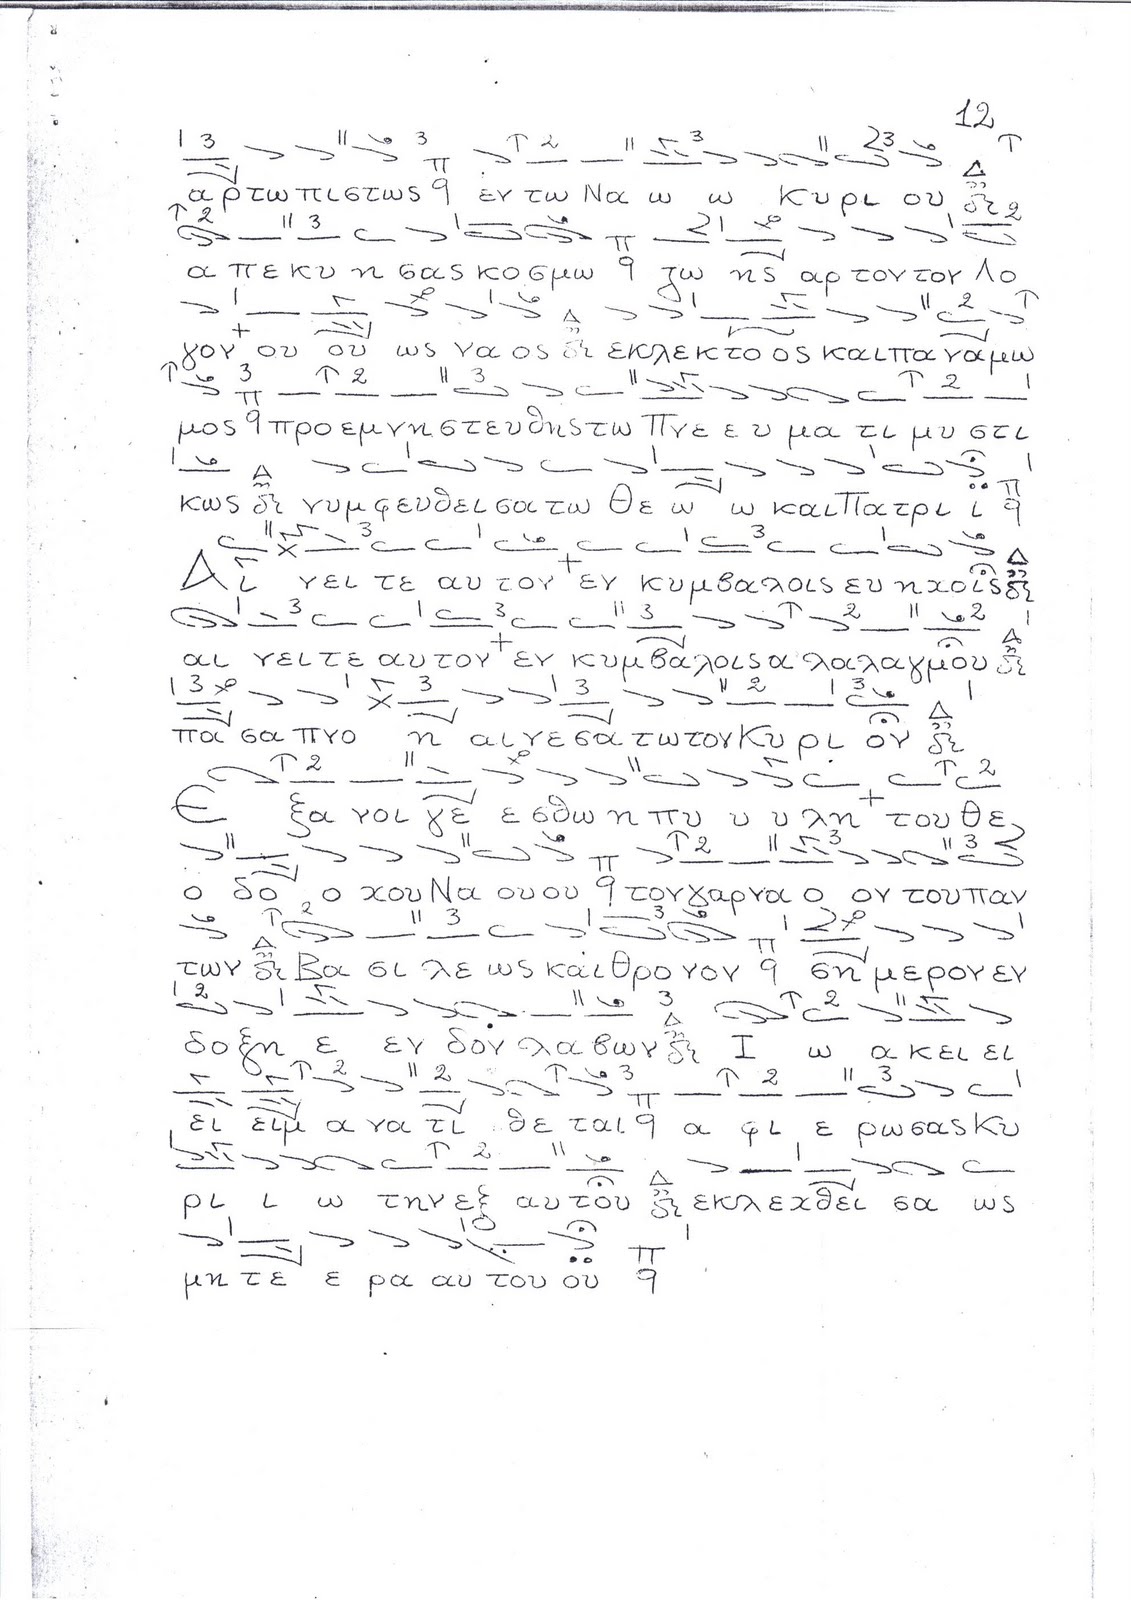 12
αρτωπιστως π q εν τω Να ω ω κυρι ου Δ δι
α πε κυ η σας κοσμω π q ζω ης αρτον τον Λο
γον + ου ου ως να ος Δ δι εκλεκτο ος και πα να μω
μος π q προ εμνη στευθης τω Πνε ε υ μα τι μυ στι
κως Δ δι νυμφευθεισα τω Θε ω ω και Πατρι ι π q
Αι νει τε αυ τον + εν κυμβαλοις ευ η χοις Δ δι
αι νει τε αυτον + εν κυμβαλοις α λαλαγμου Δ δι
πα σα πνο η αινεσατω τον Κυρι ον Δ δι
Ε ξα νοι γε ε σθω η πυ υ υ λη + του θε
ο δο ο χου Να ου ου π q τον γαρ να ο ον του παν
των Δ δι Βα σι λε ως και θρονον π q ση μερον εν
δοξη ε εν δον λα βων Δ δι Ι ω α κει ει
ει ειμ α να τι θεται π q α φι ε ρωσας Κυ
ρι ι ω την εξ αυ του Δ δι εκλεχθει σα ως
μη τε ε ρα αυ του ου π q